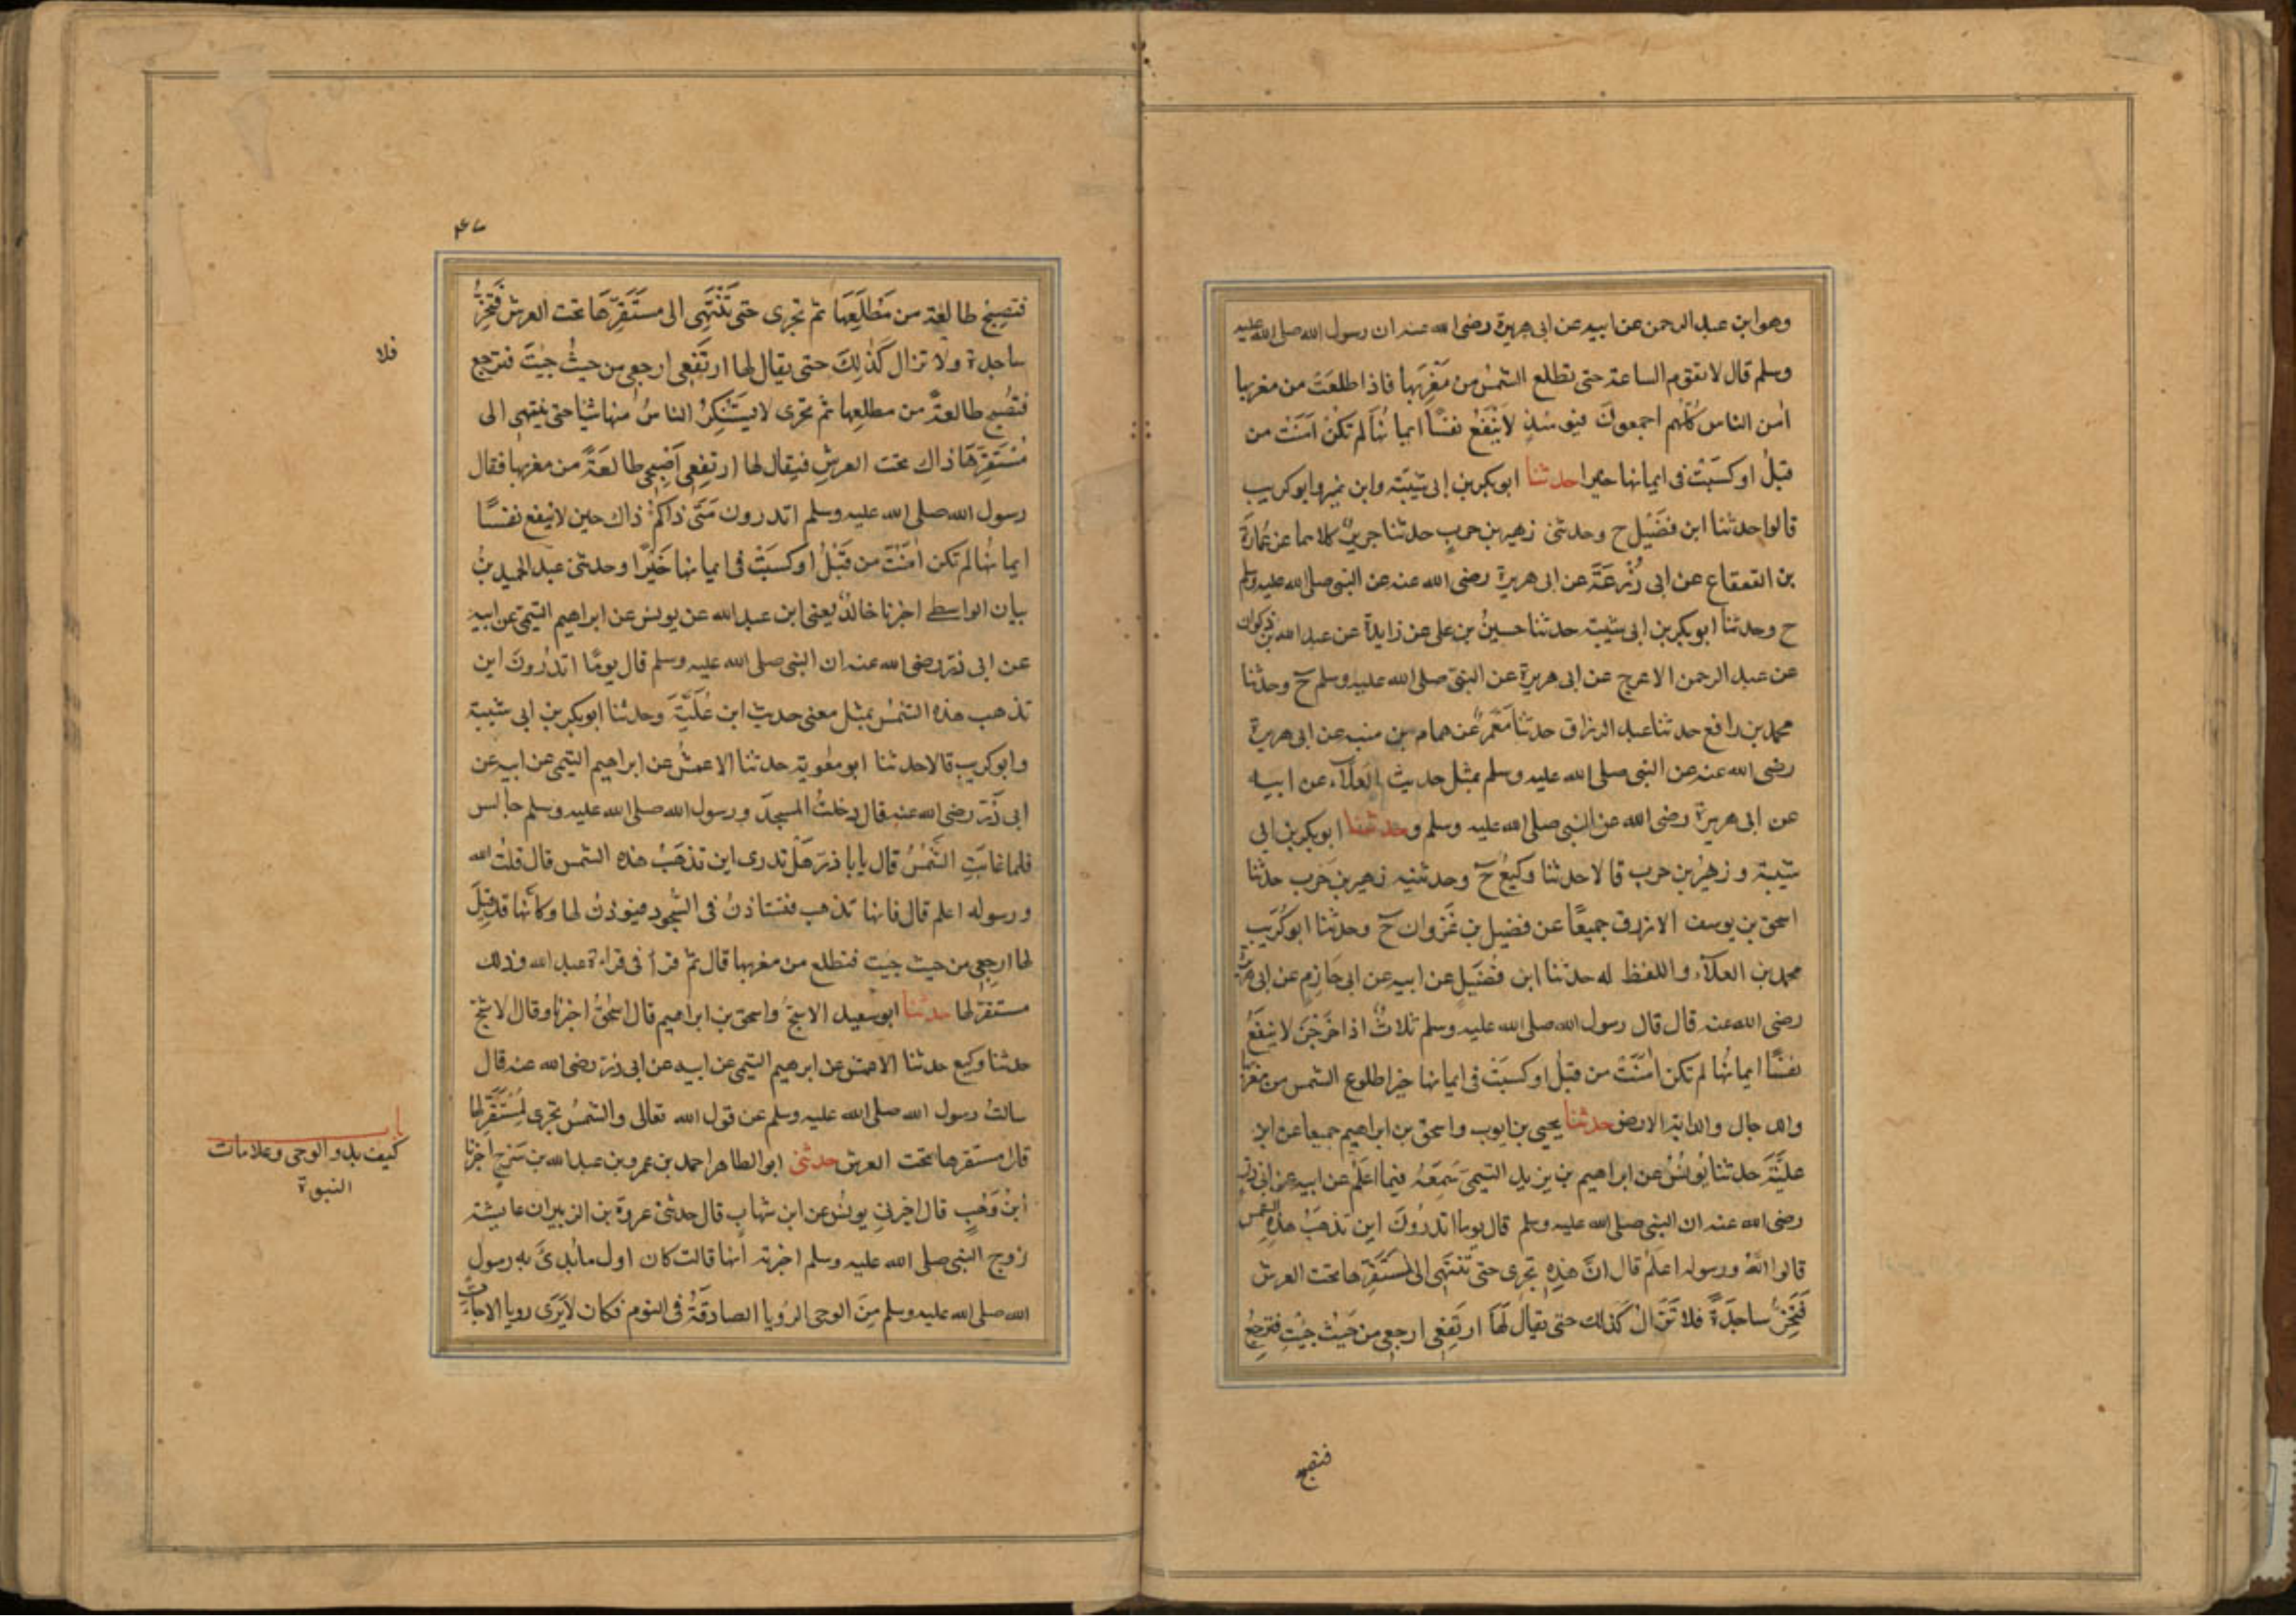 وهو ابن عبد الرحمن عن ابيه عن ابى هريرة رضى الله عنه ان رسول الله صلى الله عليه
وسلم قال لا تقوم الساعة حتى تطلع الشمس من مَغْرِبَها فاذا طلعَتْ من مغربها
اٰمن الناس كلُّهم اجمعونَ فيومئذٍ لايَنْفَعُ نفسًا ايمانُها لم تكنْ اٰمَنَتْ من
قبلُ او كسَبَتْ فى ايمانها خيرا حدثنا ابوبكر بن ابى شيبَة وابن نمير وابوكريب
قالوا حدثنا ابن فضَيْل ح وحدثنى زهير بن حربٍ حدثنا جريرٌ كلاهما عن عُمارَةَ
بن القعقاع عن ابى زُرْعَةَ عن ابى هريرة رضى الله عنه عن النبى صلى الله عليه وسلم
ح وحدثنا ابوبكر بن ابى شيبة حدثنا حسينُ بن على عن زايدة عن عبد الله بن ذكوان
عن عبد الرحمن الاعرج عن ابى هريرة عن النبىّ صلى الله عليه وسلم ح وحدثنا
محمد بن رافع حدثنا عبد الرزاق حدثنا مَعْمَرٌ عن همام بن منبه عن ابى هريرة
رضى الله عنه عن النبى صلى الله عليه وسلم بمثل حديث العلآء عن ابيه
عن ابى هريرة رضى الله عن النبى صلى الله عليه وسلم وحدثنا ابوبكر بن ابى
شيبة وزهيرُ بن حرب قالا حدثنا وكيعُ ح وحدثنيه زهير بن حَرب حدثنا
اسحق بن يوسف الازرق جميعًا عن فضيل بن غَزوان ح وحدثنا ابوكُرَيب
محمد بن العلآء واللفظ له حدثنا ابن فُضَيلٍ عن ابيه عن ابى حَازمٍ عن ابى هريرة
رضى الله عنه قال قال رسول الله صلى الله عليه وسلم ثلاثٌ اذا خَرَجْنَ لا ينفَعُ
نفسًا ايمانُها لم تكن اٰمَنَتْ من قبلُ او كسبَتْ فى ايمانها خيرا طلوع الشمس من مغربها
والدجال والدابة الارض حدثنا يحيى بن ايوب واسحق بن ابراهيم جميعا عن ابن
عليَّةَ حدثنا يُونُسُ عن ابراهيم بن يزيد التيمىّ سَمِعَهُ فيما اعلَمُ عن ابيه عن ابى ذر
رضى الله عنه ان النبى صلى الله عليه وسلم قال يوما اتدرُونَ اين تذهَبُ هذِهِ الشمس
قالوا اللّٰهُ ورسوله اعلم قال انَّ هذِهِ تجرى حتى تَنْتَهِى الى مُسْتَقَرِّها تحت العرش
فَتَخِرُّ ساجدَةً فلا تَزَالُ كذلك حتى يقال لَهَا ارتَفِعِى ارجعى من حَيْث جِئْتِ فترجعُ
فتصبح
۴۷
فتصبحُ طالعَة من مَطْلَعِهَا ثم تجرى حتى تَنْتَهِى الى مستَقَرِّهَا تحت العرش فَتَخِرُّ
ساجدة ولا تزال كَذٰلِكَ حتى يقال لها ارتَفِعى ارجعى من حيثُ جِئتَ فترجع
فلا
فتصُبح طالعةً من مطلعها ثم تجرى لايَسْتَنكِرُ الناسُ منها شيا حتى ينتهى الى
مُسْتَقَرِّهَا ذاك تحت العرشِ فيقال لها ارتفعى اَصْبِحى طالعَةً من مغربها فقال
رسول الله صلى الله عليه وسلم اتدرون مَتى ذاكم ذاك حين لا ينفع نفسًا
ايمانُها لم تكن اٰمَنَتْ من قَبْلُ او كسَبَتْ فى ايمانها خَيْرًا وحدثنى عبد الحميد بنُ
بيان الواسطے اخبرنا خالدٌ يعنى ابن عبد الله عن يونس عن ابراهيم التيمى عن ابيه
عن ابى ذرّ رضى الله عنه ان النبى صلى الله عليه وسلم قال يومًا اتدرُونَ اين
تذهب هذه الشمسُ بمثل معنى حديث ابن عُلَيَّةَ وحدثنا ابوبكر بن ابى شيبة
وابوكريب قالا حدثنا ابومعٰوية حدثنا الاعمشُ عن ابراهيم التيمى عن ابيه عن
ابى ذَرّ رضى الله عنه قال دخلتُ المسجدَ ورسول الله صلى الله عليه وسلم جالس
فلما غابَتِ الشَّمْسُ قال يابا ذرٍ هَلْ تدرى اين تذهَبُ هذه الشمس قال قلتُ الله
ورسوله اعلم قال فانها تذهب فتستاذنُ فى السُّجود فيوذنُ لها وكأنها قد قيلَ
لها ارجعى من حيث جيت فتطلع من مغربها قال ثم قرأ فى قراءة عبد الله وذلك
مستقر لها حدثنا ابوسعيد الاشجُّ واسحق بن ابراهيم قال اسحٰقُ اخبرنا وقال الاشجّ
حدثنا وكيع حدثنا الاعمش عن ابرهيم التيمى عن ابيه عن ابى ذرّ رضى الله عنه قال
سالتُ رسول الله صلى الله عليه وسلم عن قول الله تعالى والشمسُ تجرى لِمُسْتَقَرٍّ لها
قال مستقرها تحت العرش حدثنى ابوالطاهر احمد بن عمرو بن عبد الله بن سَرْحٍ اخبرنا
باب
كيف بدو الوحى وعلامات
النبوة
ابنُ وَهْبٍ قال اخبرنى يونسُ عن ابن شهابٍ قال حدثنى عروة بن الزبير ان عايشة
زوج النبى صلى الله عليه وسلم اخبرته انها قالت كان اول ما بُدِئَ به رسول
الله صلى الله عليه وسلم مِنَ الوحى الرُويا الصادقَةُ فى النوم فكان لايَرَى رويا الا جاءت